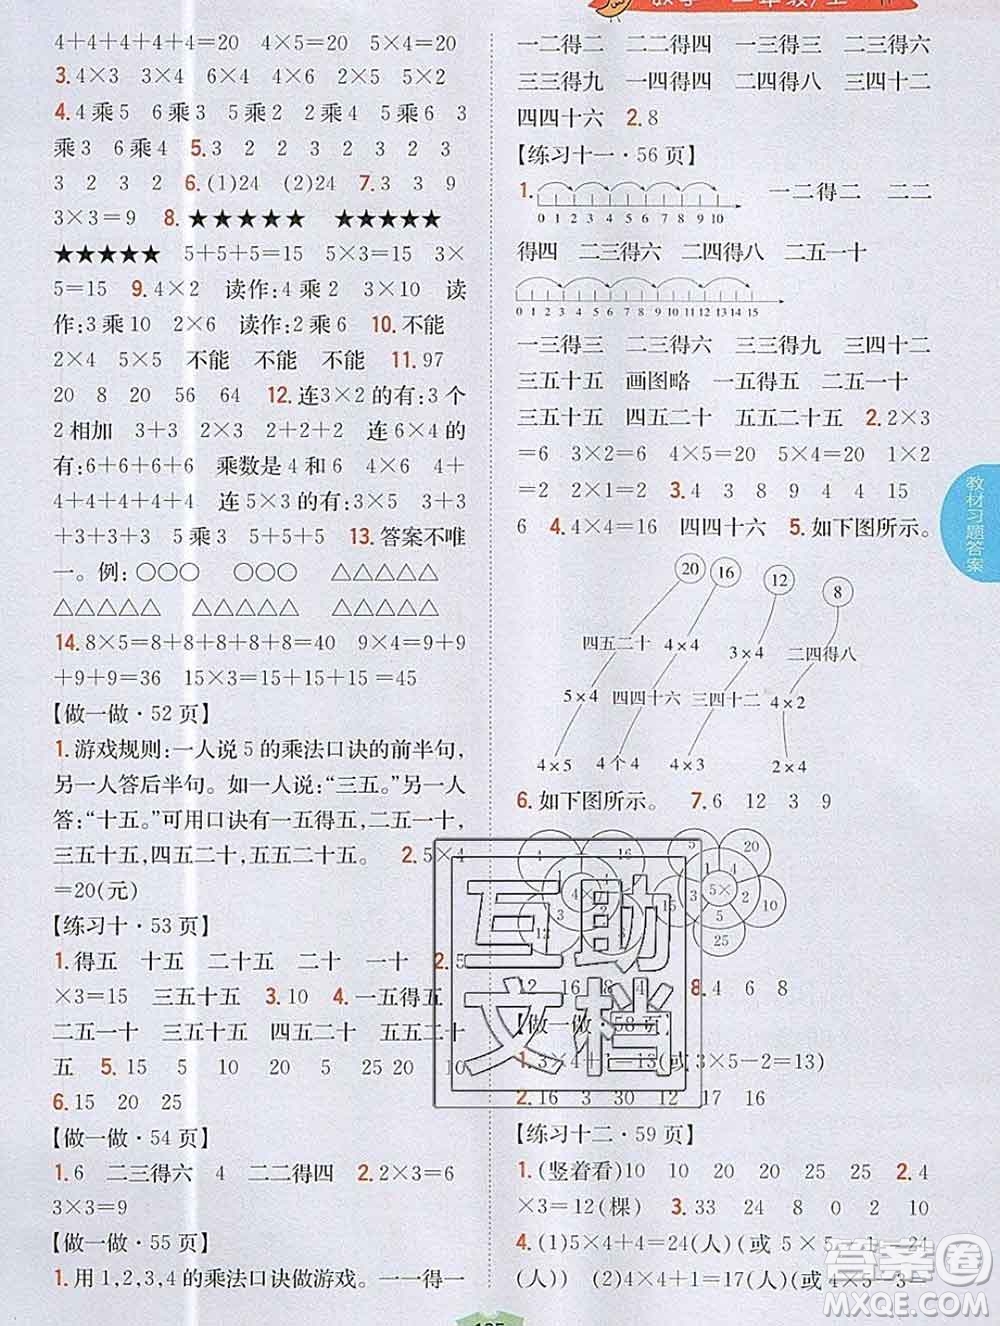 4+4+4+4+4=20 4×5=20 5×4=20
3. 4×3 3×4 4×5 2×5 5×2
4. 4乘5 6乘3 5乘4 5乘6 3
乘3 6乘4 5. 3 4 2 3 3
3 2 4 6. (1)24 (2)24 7. 3 3 9
3×3=9 8. ★★★★★ ★★★★★
★★★★★ 5+5+5=15 5×3=15 3×
5=15 9. 4×2 读作:4乘2 3×10 读
作:3乘10 2×6 读作:2乘6 10. 不能
2×4 5×5 不能 不能 不能 11. 97
20 8 20 56 64 12. 连3×2的有:3个
2相加 3+3 2×3 2+2+2 连6×4的
有:6+6+6+6 乘数是4和6 4×6 4+
4+4+4+4+4 连5×3的有:3×5 3+3
+3+3+3 5+5+5 13. 答案不唯
一。例:○○○ ○○○ △△△△△
△△△△△ △△△△△ △△△△△
14. 8×5=8+8+8+8+8=40 9×4=9+9
+9+9=36 15×3=15+15+15=45
【做一做·52页】
1. 游戏规则:一人说5的乘法口诀的前半句,
另一人答后半句。如一人说:“三五。”另一人
答:“十五。”可用口诀有一五得五,二五一十,
三五十五,四五二十,五五二十五。 2. 5×4
=20(元)
【练习十·53页】
1. 得五 十五 二十五 二十 一十 2. 5
×3=15 三五十五 3. 10 4. 一五得五
二五一十 三五十五 四五二十 五五二十
五 5. 15 5 20 10 25 20 25
6. 15 20 25
【做一做·54页】
1. 6 二三得六 4 二二得四 2. 2×3=6
3×3=9
【做一做·55页】
1. 用1,2,3,4的乘法口诀做游戏。一一得一
一二得二 二二得四 一三得三 二三得六
三三得九 一四得四 二四得八 三四十二
四四十六 2. 8
【练习十一·56页】
1. 一二得二 二二
0 1 2 3 4 5 6 7 8 9 10
得四 二三得六 二四得八 二五一十
0 1 2 3 4 5 6 7 8 9 10 11 12 13 14 15
一三得三 二三得六 三三得九 三四十二
三五十五 画图略 一五得五 二五一十
三五十五 四五二十 五五二十五 2. 2×3
=6 3×2=6 2+2=4 2×2=4 2×1
=2 1×2=2 3. 4 3 8 9 4 4 15
6 4. 4×4=16 四四十六 5. 如下图所示。
20 16 12 8
四五二十 4×4 3×4 二四得八
5×4 四四十六 三四十二 4×2
4×5 4个4 4×3 2×4
6. 如下图所示。 7. 6 12 3 9
5 20
5×
25
12 16 8 4 8. 4 6 8
【做一做·58页】
1. 3×4+1=13(或3×5-2=13)
2. 16 3 30 16 20
【练习十二·59页】
1. (竖着看)10 10 20 20 25 25 2. 4
×3=12(棵) 3. 33 24 8 0 2 10
4. (1)5×4+4=24(人)(或 5×5-1=24
(人)) (2)4×4+1=17(人)(或4×5-3=
教材习题答案
互助
文档
答案圈
MXQE.COM